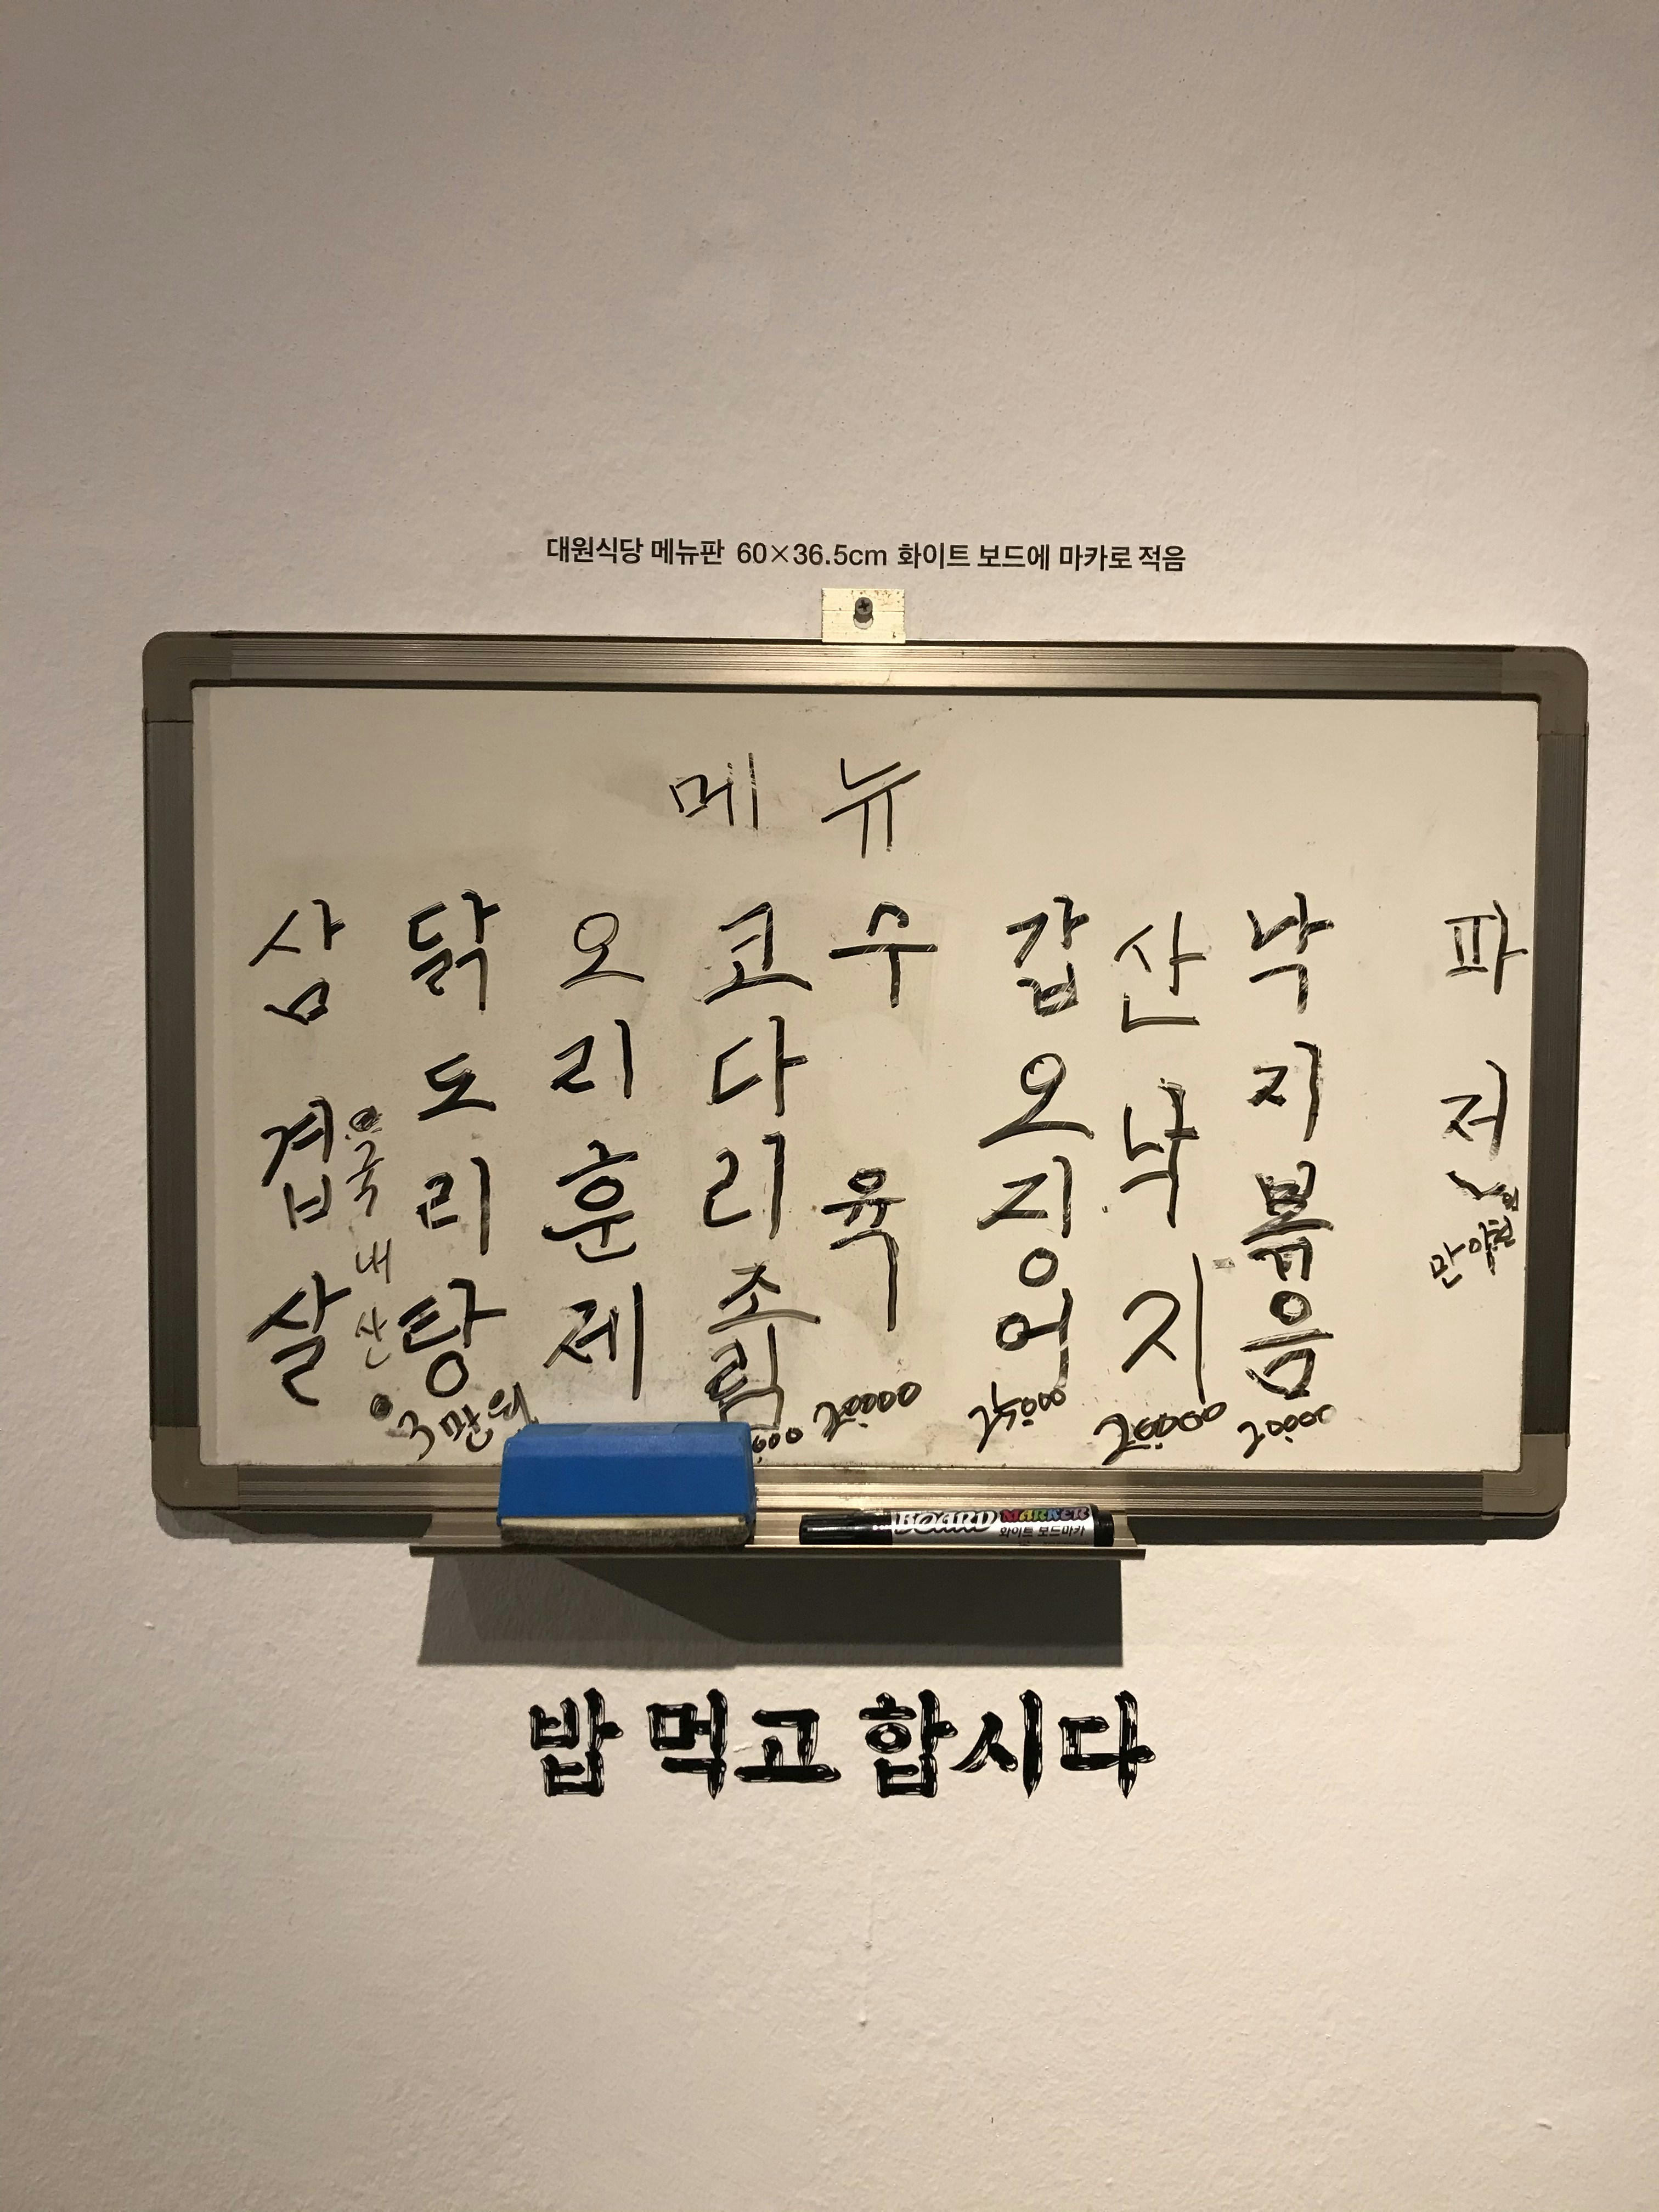 대원식당 메뉴판 60×36.5cm 화이트 보드에 마카로 적음
메뉴
삼겹살
국내산
닭도리탕
3만원
오리훈제
코다리조림
수육
갑오징어
산낙지
낙지볶음
파저
BOARD MARKER
화이트 보드마카
밥 먹고 합시다